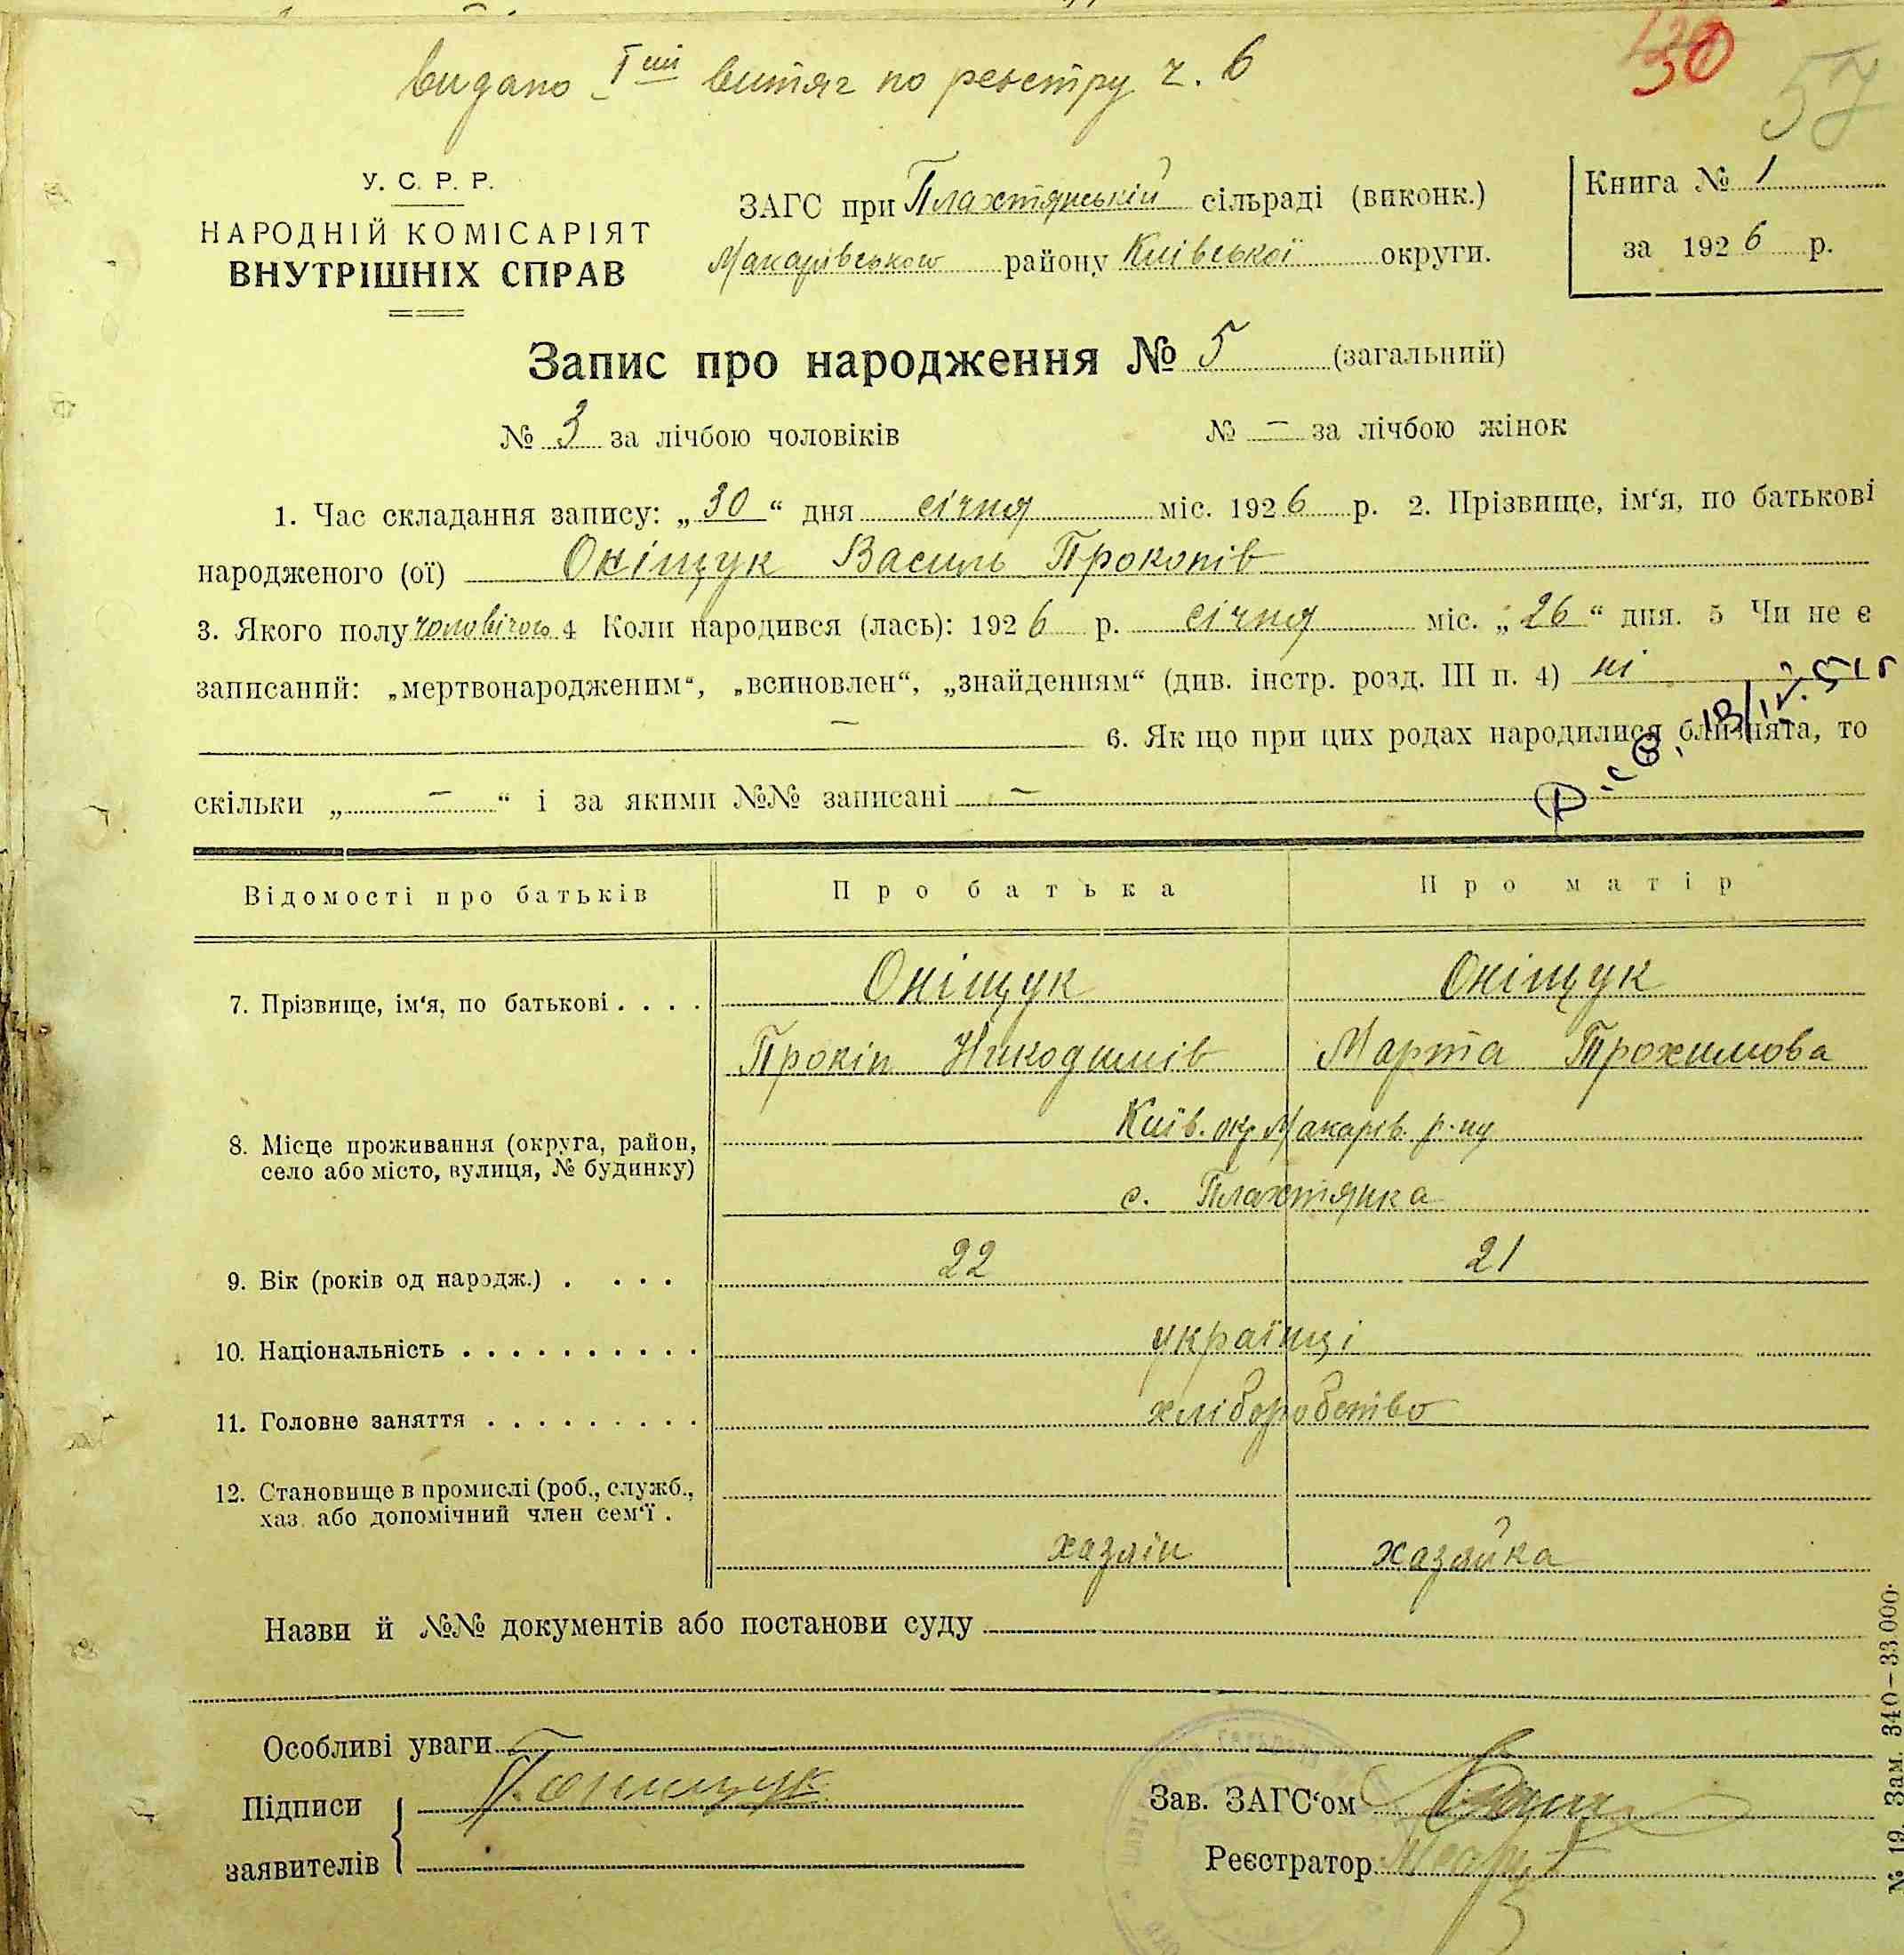 видано І-ий витяг по реєстру ч. 6
30
57
У. С. Р. Р.
НАРОДНІЙ КОМІСАРІЯТ
ВНУТРІШНІХ СПРАВ
ЗАГС при Плахтянській сільраді (виконк.)
Макарівського району Київської округи.
Книга № 1
за 1926 р.
Запис про народження № 5 (загальний)
№ 3 за лічбою чоловіків № – за лічбою жінок
1. Час складання запису: „30“ дня січня міс. 1926 р. 2. Прізвище, ім‘я, по батькові
народженого (ої) Оніщук Василь Прокопів
3. Якого полу чоловічого 4 Коли народився (лась): 1926 р. січня міс. „26“ дня. 5 Чи не є
записаний: „мертвонародженим“, „всиновлен“, „знайденням“ (див. інстр. розд. III п. 4) ні
– 6. Як що при цих родах народилися близнята, то
скільки „ – “ і за якими №№ записані –
Відомості про батьків Про батька Про матір
7. Прізвище, ім‘я, по батькові . . . . Оніщук Оніщук
Прокіп Никодимів Марта Трохимова
8. Місце проживання (округа, район, село або місто, вулиця, № будинку) Київ. окр. Макарів. р-ну
с. Плахтянка
9. Вік (років од народж.) . . . . 22 21
10. Національність . . . . . . . . . . українці
11. Головне заняття . . . . . . . . . хліборобство
12. Становище в промислі (роб., служб.,
хаз. або допомічний член сем‘ї .
хазяїн хазяйка
Назви й №№ документів або постанови суду
Особливі уваги –
Підписи П. Онищук
заявителів
Зав. ЗАГС‘ом
Реєстратор
№ 19. Зам. 340–33.000.